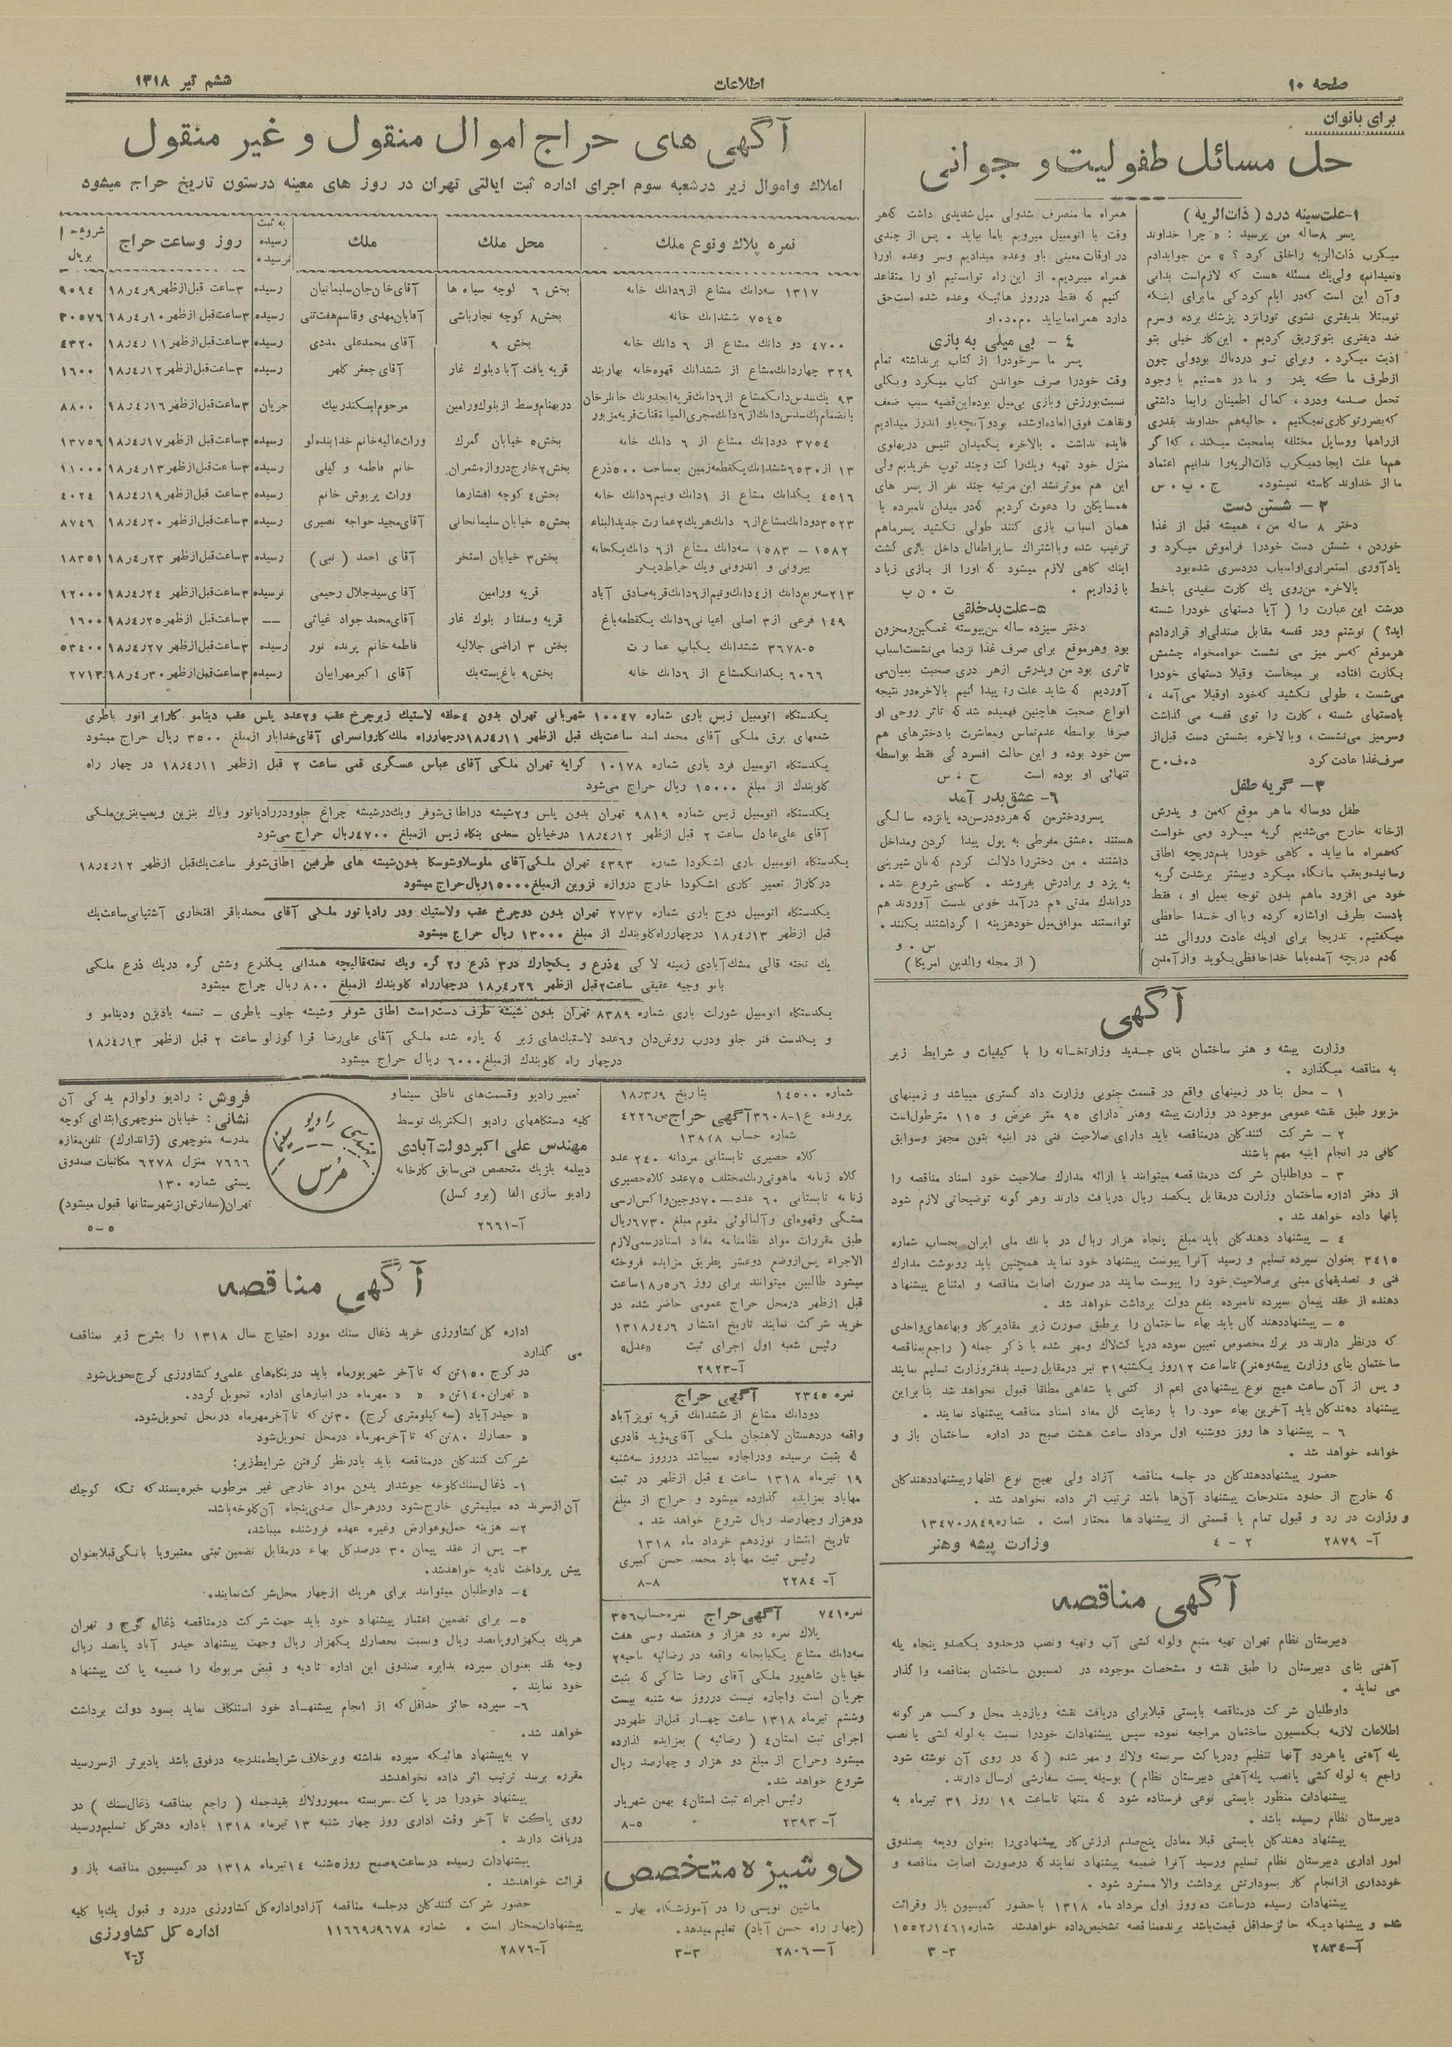 صفحه ۱۰
اطلاعات
ششم تیر ۱۳۱۸
برای بانوان
حل مسائل طفولیت و جوانی
۱-علت سینه درد (ذات‌الریه)
پسر ۸ساله من پرسید: «چرا خداوند
میکرب ذات‌الریه راخلق کرد؟» من جوابدادم
«نمیدانم» ولی یک مسئله هست که لازم‌است بدانی
وآن این است که‌در ایام کودکی مابرای اینکه
تومبتلا بدیفتری نشوی تورانزد پزشک برده وسرم
ضد دیفتری بتوتزریق کردیم. این‌کار خیلی بتو
اذیت میکرد. وبرای تو دردناک بودولی چون
ازطرف ما که پدر و مادر هستیم با وجود
تحمل صدمه ودرد، کمال اطمینان رابما داشتی
که‌بضررتوکاری نمیکنیم. حالیه‌هم خداوند بقدری
ازراهها ووسایل مختلفه بمامحبت میکند، که‌اگر
هم‌ما علت ایجادمیکرب ذات‌الریه‌را ندانیم اعتماد
ما از خداوند کاسته نمیشود. ج.پ.س
۲- شستن دست
دختر ۸ ساله من، همیشه قبل از غذا
خوردن، شستن دست خودرا فراموش میکرد و
یادآوری استمراری‌اواسباب دردسری شده‌بود
بالاخره من‌روی یک کارت سفیدی باخط
درشت این عبارت را (آیا دستهای خودرا شسته
اید؟) نوشتم ودر قفسه مقابل صندلی‌او قراردادم
هرموقع که‌سر میز می نشست خواه‌مخواه چشمش
بکارت افتاده بر میخاست وقبلا دستهای خودرا
می‌شست، طولی نکشید که‌خود اوقبلا می‌آمد،
بادستهای شسته، کارت را توی قفسه می گذاشت
وسرمیز می‌نشست، وبالاخره بشستن دست قبل‌از
صرف‌غذا عادت کرد د.ف.ح
۳- گریه طفل
طفل دوساله ماهر موقع که‌من و پدرش
ازخانه خارج می‌شدیم گریه میکرد ومی خواست
که‌همراه ما بیاید. گاهی خودرا بدم‌دریچه اطاق
رسانیده‌وبعقب مانگاه میکرد وبیشتر برشدت گریه
خود می افزود ماهم بدون توجه بمیل او، فقط
بادست بطرف اواشاره کرده وبااو خدا حافظی
میکفتیم. تدریجا برای اویک عادت وروالی شد
که‌دم دریچه آمده‌باما خداحافظی‌بگوید وازآمدن
همراه ما منصرف شدولی میل شدیدی داشت که‌هر
وقت با اتومبیل میرویم باما بیاید. پس از چندی
در اوقات معینی باو وعده میدادیم وسر وعده اورا
همراه میبردیم. از این راه توانستیم او را متقاعد
کنیم که فقط درروز هائیکه وعده شده است‌حق
دارد همراه‌مابیاید م.د.او
۴- بی میلی به بازی
پسر ما سرخودرا از کتاب برنداشته تمام
وقت خودرا صرف خواندن کتاب میکرد وبکلی
نسبت‌بورزش وبازی بی‌میل بود‌این‌قضیه سبب ضعف
ونقاهت فوق‌العاده‌اوشده بودوآنچه‌باو اندرز میدادیم
فایده نداشت. بالاخره یکمیدان تنیس درپهلوی
منزل خود تهیه ویک‌راکت وچند توپ خریدیم ولی
این هم موثرنشد این مرتبه چند نفر از پسر های
همسایکان را دعوت کردیم که‌در میدان نامبرده با
همان اسباب بازی کنند طولی نکشید پسرماهم
ترغیب شده وبااشتراک سایراطفال داخل بازی گشت
اینک گاهی لازم میشود که اورا از بازی زیاد
بازداریم. ت.ن.پ
۵-علت بدخلقی
دختر سیزده ساله من‌پیوسته غمگین‌ومحزون
بود وهرموقع برای صرف غذا نزدما می‌نشست‌اسباب
تاثری بود من وپدرش ازهر دری صحبت بمیان‌می
آوردیم که شاید علت را پیدا کنیم بالاخره‌در نتیجه
انواع صحبت هاچنین فهمیده شد که تاثر روحی او
صرفا بواسطه عدم‌تماس ومعاشرت بادخترهای هم
سن خود بوده و این حالت افسردگی فقط بواسطه
تنهائی او بوده است ح.س
۶- عشق بدر آمد
پسرودخترمن که هردودرسن‌ده پانزده سالگی
هستند. عشق مفرطی به پول پیدا کردن ومداخل
داشتند. من دختررا دلالت کردم که‌نان شیرینی
به پزد و برادرش بفروشد. کاسبی شروع شد.
دراندک مدتی هم درآمد خوبی بدست آوردند هم
توانستند موافق‌میل خودهزینه‌اگرداشتند بکنند.
س.و
(از مجله والدین امریکا)
آگهی
وزارت پیشه و هنر ساختمان بنای جدید وزارتخانه را با کیفیات و شرایط زیر
به مناقصه میگذارد.
۱- محل بنا در زمینهای واقع در قسمت جنوبی وزارت داد گستری میباشد و زمینهای
مزبور طبق نقشه عمومی موجود در وزارت پیشه وهنر دارای ۹۵ متر عرض و ۱۱۵ مترطول‌است
۲- شرکت کنندگان درمناقصه باید دارای صلاحیت فنی در ابنیه بتون مجهز وسوابق
کافی در انجام ابنیه مهم باشند
۳- دواطلبان شرکت درمناقصه میتوانند با ارائه مدارک صلاحیت خود اسناد مناقصه را
از دفتر اداره ساختمان وزارت درمقابل یکصد ریال دریافت دارند وهر گونه توضیحاتی لازم شود
بانها داده خواهد شد.
۴- پیشنهاد دهندگان باید مبلغ پنجاه هزار ریال در بانک ملی ایران بحساب شماره
۳۴۱۵ بعنوان سپرده تسلیم و رسید آنرا پیوست پیشنهاد خود نماید همچنین باید رونوشت مدارک
فنی و تصدیقهای مبنی برصلاحیت خود را پیوست نمایند در صورت اصابت مناقصه و امتناع پیشنهاد
دهنده از عقد پیمان سپرده نامبرده بنفع دولت برداشت خواهد شد.
۵- پیشنهاددهند گان باید بهاء ساختمان را برطبق صورت زیر مقادیرکار وبهاءهای‌واحدی
که درنظر دارند در برک مخصوص تعیین نموده درپاکت‌لاک ومهر شده با ذکر جمله (راجع‌بمناقصه
ساختمان بنای وزارت پیشه‌وهنر) تاساعت ۱۲روز یکشنبه۳۱ تیر درمقابل رسید بدفتروزارت تسلیم نمایند
و پس از آن ساعت هیچ نوع پیشنهادی اعم از کتبی یا شفاهی مطلقا قبول نخواهد شد بنا براین
پیشنهاد دهندکان باید آخرین بهاء خود را با رعایت کل مفاد اسناد مناقصه پیشنهاد نمایند.
۶- پیشنهاد ها روز دوشنبه اول مرداد ساعت هشت صبح در اداره ساختمان باز و
خوانده خواهد شد.
حضور پیشنهاددهندکان در جلسه مناقصه آزاد ولی بهیچ نوع اظهارپیشنهاددهندکان
که خارج از حدود مندرجات پیشنهاد آن‌ها باشد ترتیب اثر داده نخواهد شد.
و وزارت در رد و قبول تمام یا قسمتی از پیشنهاد ها مختار است. شماره۱۳۴۷۰ر۸۴۹
آ- ۲۸۷۹ ۲-۴ وزارت پیشه وهنر
آگهی مناقصه
دبیرستان نظام تهران تهیه منبع ولوله کشی آب وتهیه ونصب درحدود یکصدو پنجاه پله
آهنی بنای دبیرستان را طبق نقشه و مشخصات موجوده در کمسیون ساختمان بمناقصه واگذار
می نماید.
داوطلبان شرکت درمناقصه بایستی قبلابرای دریافت نقشه وبازدید محل وکسب هر گونه
اطلاعات لازمه بکمسیون ساختمان مراجعه نموده سپس پیشنهادات خودرا نسبت به لوله کشی یا نصب
پله آهنی یاهردو آنها تنظیم ودرپاکت سربسته ولاک و مهر شده (که در روی آن نوشته شود
راجع به لوله کشی یانصب پله‌آهنی دبیرستان نظام) بوسیله پست سفارشی ارسال دارند.
پیشنهادات منظور بایستی نوعی فرستاده شود که منتها تاساعت ۱۹ روز ۳۱ تیرماه به
دبیرستان نظام رسیده باشد.
پیشنهاد دهندکان بایستی قبلا معادل پنج‌صدم ارزش‌کار پیشنهادی‌را بعنوان ودیعه بصندوق
امور اداری دبیرستان نظام تسلیم ورسید آنرا ضمیمه پیشنهاد نمایندکه درصورت اصابت مناقصه و
خودداری ازانجام کار بسودارتش برداشت والا مسترد شود.
پیشنهادات رسیده درساعت ده روز اول مرداد ماه ۱۳۱۸ باحضور کمیسیون باز وقرائت
شده و پیشنهادیکه حائزحداقل قیمت‌باشد برنده‌مناقصه تشخیص‌داده خواهدشد شماره۱۴۶۱ر۱۵۵۲
آ-۲۸۳۴ ۳-۳
آگهی های حراج اموال منقول و غیر منقول
املاک واموال زیر درشعبه سوم اجرای اداره ثبت ایالتی تهران در روز های معینه درستون تاریخ حراج میشود
نمره پلاک ونوع ملک | محل ملک | ملک | به ثبت رسیده نرسیده | روز وساعت حراج | بریال
۱۳۱۷ سه‌دانک مشاع از۶دانک خانه | بخش ۶ کوچه سیاه ها | آقای‌خان‌جان‌سلیمانیان | رسیده | ۳ساعت قبل‌ازظهر ۹ر۴ر۱۸ | ۹۰۹۴
۷۵۴۵ ششدانک خانه | بخش۸ کوچه نجارباشی | آقایان‌مهدی وقاسم‌هفت‌تنی | رسیده | ۳ساعت‌قبل ازظهر ۱۰ر۴ر۱۸ | ۳۰۵۷۶
۴۷۰۰ دو دانک مشاع از ۶ دانک خانه | بخش ۹ | آقای محمدعلی مددی | رسیده | ۳ساعت‌قبل ازظهر ۱۱ر۴ر۱۸ | ۴۳۲۰
۳۲۹ چهاردانک‌مشاع از ششدانک قهوه‌خانه بهاربند | قریه یافت آباد بلوک غار | آقای جعفر کلهر | رسیده | ۳ساعت‌قبل ازظهر ۱۲ر۴ر۱۸ | ۱۶۰۰
۹۳ یک‌سدس‌دانک‌مشاع از۶دانک‌قریه‌ایجدونک خانلرخان
بانضمام‌یک‌سدس‌دانک‌از۶دانک‌مجری‌المیاه‌قنات‌قریه‌مزبور | دربهنام‌وسط ازبلوک‌ورامین | مرحوم‌اسکندربیک | جریان | ۳ساعت‌قبل ازظهر ۱۶ر۴ر۱۸ | ۸۸۰۰
۳۷۵۴ دودانک مشاع از ۶ دانک خانه | بخش۵ خیابان گمرک | وراث‌عالیه‌خانم خداینده‌لو | رسیده | ۳ساعت‌قبل ازظهر ۱۷ر۴ر۱۸ | ۱۳۷۵۶
۱۳ از۶۵۳۰ششدانک‌یکقطعه‌زمین بمساحت ۵۰۰ذرع | بخش۲خارج‌دروازه‌شمران | خانم فاطمه و کیلی | رسیده | ۳ساعت‌قبل ازظهر ۱۳ر۴ر۱۸ | ۱۱۰۰۰
۴۵۱۶ یکدانک مشاع از ۱دانک ونیم۶دانک خانه | بخش۴ کوچه افشارها | وراث پریوش خانم | رسیده | ۳ساعت‌قبل ازظهر ۱۹ر۴ر۱۸ | ۴۰۲۴
۳۵۲۳دودانک‌مشاع‌از۶ دانک‌هریک۲عمارت جدیدالبناء | بخش۵ خیابان سلیمانخانی | آقای‌مجیدخواجه نصیری | رسیده | ۳ساعت‌قبل ازظهر ۲۰ر۴ر۱۸ | ۸۷۴۶
۱۵۸۲ – ۱۵۸۳ سه‌دانک مشاع از۶ دانک‌یکخانه
بیرونی و اندرونی ویک حیاط‌دیگر | بخش۳ خیابان استخر | آقای احمد (نبی) | رسیده | ۳ساعت‌قبل ازظهر ۲۳ر۴ر۱۸ | ۱۸۳۵۱
۲۱۳سه‌ربع‌دانک از۴دانک‌ونیم‌از۶دانک‌قریه‌صادق آباد | قریه ورامین | آقای‌سیدجلال رحیمی | نرسیده | ۳ساعت‌قبل ازظهر ۲۴ر۴ر۱۸ | ۱۲۰۰۰
۱۴۹ فرعی از۳ اصلی اعیانی۶دانک یکقطعه‌باغ | قریه وسفنار بلوک غار | آقای‌محمدجواد غیاثی | -- | ۳ساعت‌قبل ازظهر ۲۵ر۴ر۱۸ | ۱۶۰۰
۵-۳۶۷۸ ششدانک یکباب عمارت | بخش ۳ اراضی جلالیه | فاطمه خانم پرنده نور | رسیده | ۳ساعت‌قبل ازظهر ۲۷ر۴ر۱۸ | ۵۳۴۰۰
۶۰۶۶ یکدانکمشاع از ۶دانک خانه | بخش۹ باغ‌پسته‌بک | آقای اکبرمهرابیان | رسیده | ۳ساعت‌قبل ازظهر ۳۰ر۴ر۱۸ | ۲۷۱۳
یکدستکاه اتومبیل زیس باری شماره ۱۰۰۴۷ شهربانی تهران بدون ۴حلقه لاستیک زیرچرخ عقب و۲عدد پلس عقب دینامو کاربراتور باطری
شمعهای برق ملکی آقای محمد اسد ساعت‌یک قبل ازظهر ۱۱ر۴ر۱۸درچهارراه ملک‌کاروانسرای آقای‌خدایار ازمبلغ ۳۵۰۰ ریال حراج میشود
یکدستکاه اتومبیل فرد باری شماره ۱۰۱۷۸ کرایه تهران ملکی آقای عباس عسگری قمی ساعت ۲ قبل ازظهر ۱۱ر۴ر۱۸ در چهار راه
کلوبندک از مبلغ ۱۵۰۰۰ ریال حراج می‌شود
یکدستکاه اتومبیل زیس شماره ۹۸۱۹ تهران بدون پلس و۲شیشه دراطاق‌شوفر ویک‌درشیشه چراغ جلوودررادیاتور وباک بنزین وپمپ‌بنزین‌ملکی
آقای علی‌عادل ساعت ۲ قبل ازظهر ۱۲ر۴ر۱۸ درخیابان سعدی بنگاه زیس ازمبلغ ۴۷۰۰ریال حراج می‌شود
یکدستکاه اتومبیل باری اشکودا شماره ۴۳۹۳ تهران ملکی‌آقای ملوسلاوشوسکا بدون‌شیشه های طرفین اطاق‌شوفر ساعت‌یک‌قبل ازظهر ۱۲ر۴ر۱۸
درکاراژ تعمیر کاری اشکودا خارج دروازه قزوین ازمبلغ۱۵۰۰۰ریال‌حراج میشود
یکدستکاه اتومبیل دوج باری شماره ۲۷۳۷ تهران بدون دوچرخ عقب ولاستیک ودر رادیاتور ملکی آقای محمدباقر افتخاری آشتیانی‌ساعت‌یک
قبل ازظهر ۱۳ر۴ر۱۸ درچهارراه‌کلوبندک از مبلغ ۱۳۰۰۰ ریال حراج میشود
یک تخته قالی مشک‌آبادی زمینه لاکی ۴ذرع و یکچارک در۳ ذرع و۲ گره ویک تخته‌قالیچه همدانی یکذرع وشش گره دریک ذرع ملکی
بانو وجیه عقیقی ساعت۲قبل ازظهر ۲۶ر۴ر۱۸ درچهارراه کلوبندک ازمبلغ ۸۰۰ ریال حراج میشود
یکدستکاه اتومبیل شورلت باری شماره ۸۳۸۹ تهران بدون شیشه طرف دست‌راست اطاق شوفر وشیشه جلو- باطری – تسمه بادبزن ودینامو و
و یکدست فنر جلو ودرب روغن‌دان و۶عدد لاستیک‌های زیر که پاره شده ملکی آقای علی‌رضا قرا گوزلو ساعت ۲ قبل ازظهر ۱۳ر۴ر۱۸
درچهار راه کلوبندک ازمبلغ۶۰۰۰ ریال حراج میشود
شماره ۱۴۵۰۰ بتاریخ ۹ر۳ر۱۸
پرونده ع۱-۳۶۰۸ آگهی حراج ص۴۲۲۶
شماره حساب ۱۳۸۲۸
کلاه حصیری تابستانی مردانه ۲۴۰ عدد
کلاه زنانه ماهوتی‌رنک‌مختلف ۷۵عدد کلاه‌حصیری
زنانه تابستانی ۶۰ عدد-۷۰دوجین‌واکس‌ارسی
مشگی وقهوه‌ای وآلبالوئی مقوم مبلغ ۶۷۳۰ریال
طبق مقررات مواد نظامنامه مفاد اسنادرسمی‌لازم
الاجراء پس‌ازوضع دوعشر بطریق مزایده فروخته
میشود طالبین میتوانند برای روز ۶ر۵ر۱۸ساعت
قبل ازظهر درمحل حراج عمومی حاضر شده در
خرید شرکت نمایند تاریخ انتشار ۶ر۴ر۱۳۱۸
رئیس شعبه اول اجرای ثبت «عدل»
آ-۲۹۲۳
نمره ۲۳۴۵ آگهی حراج
دودانک مشاع از ششدانک قریه تویزآباد
واقعه دردهستان لاهنجان ملکی آقای‌مؤید قادری
که بثبت نرسیده ودراجاره نمیباشد درروز سه‌شنبه
۱۹ تیرماه ۱۳۱۸ ساعت ۴ قبل ازظهر در ثبت
مهاباد بمزایده گذارده میشود و حراج از مبلغ
دوهزار وچهارصد ریال شروع خواهد شد.
تاریخ انتشار نوزدهم خرداد ماه ۱۳۱۸
رئیس ثبت مهاباد محمد حسن کبیری
آ-۲۲۸۴ ۸-۸
نمره۷۴۱ آگهی‌حراج نمره‌حساب ۳۵۶
پلاک نمره دو هزار و هفتصد وسی هفت
سه‌دانک مشاع یکبابخانه واقعه در رضائیه ناحیه۲
خیابان شاهپور ملکی آقای رضا شاکی که بثبت
جریان است واجاره نیست درروز سه شنبه بیست
وششم تیرماه ۱۳۱۸ ساعت چهار قبل‌از ظهردر
اجرای ثبت استان۴ (رضائیه) بمزایده گذارده
میشود وحراج از مبلغ دو هزار و چهارصد ریال
شروع خواهد شد.
رئیس اجراء ثبت استان۴ بهمن شهریار
آ-۲۳۹۳ ۵-۸
دوشیزه متخصص
ماشین نویسی را در آموزشگاه بهار -
(چهار راه حسن آباد) تعلیم میدهد.
آ-۲۸۰۶ ۳-۳
تعمیر رادیو وقسمت‌های ناطق سینما و
کلیه دستکاههای رادیو الکتریک توسط
مهندس علی اکبر دولت‌آبادی
دیپلمه بلژیک متخصص فنی‌سابق کارخانه
رادیو سازی الفا (بروکسل)
آ-۲۶۶۱
رادیو
سینما
مُرس
فروش: رادیو ولوازم یدکی آن
نشانی: خیابان منوچهری‌ابتدای کوچه
مدرسه منوچهری (ژاندارک) تلفن‌مغازه
۷۶۶۶ منزل ۶۲۷۸ مکاتبات صندوق
پستی شماره ۱۳۰
تهران(سفارش‌ازشهرستانها قبول میشود)
۵-۵
آگهی مناقصه
اداره کل‌کشاورزی خرید ذغال سنک مورد احتیاج سال ۱۳۱۸ را بشرح زیر بمناقصه
می گذارد
در کرج ۱۵۰تن که تاآخر شهریورماه باید دربنگاه‌های علمی‌و کشاورزی کرج‌تحویل‌شود
«تهران۱۴۰تن« « « مهرماه در انبارهای اداره تحویل گردد.
« حیدرآباد (سه کیلومتری کرج) ۳۰تن که تاآخرمهرماه درمحل تحویل‌شود.
« حصارک ۸۰تن که تاآخرمهرماه درمحل تحویل‌شود
شرکت کنندکان درمناقصه باید بادرنظر گرفتن شرایط‌زیر:
۱- ذغال‌سنک‌کلوخه جوشدار بدون مواد خارجی غیر مرطوب خبره‌پسندکه تکه کوچک
آن‌ازسرند ده میلیمتری خارج‌نشود ودرهرحال صدی‌پنجاه آن‌کلوخه‌باشد.
۲- هزینه حمل‌وعوارض وغیره عهده فروشنده میباشد،
۳- پس از عقد پیمان ۳۰ درصدکل بهاء درمقابل تضمین ثبتی معتبرویا بانگی‌قبلابعنوان
پیش پرداخت تادیه خواهدشد.
۴- داوطلبان میتوانند برای هریک ازچهار محل‌شرکت‌نمایند.
۵- برای تضمین اعتبار پیشنهاد خود باید جهت‌شرکت درمناقصه ذغال کرج و تهران
هریک یکهزاروپانصد ریال ونسبت بحصارک یکهزار ریال وجهت پیشنهاد حیدر آباد پانصد ریال
وجه نقد بعنوان سپرده بدایره صندوق این اداره تادیه و قبض مربوطه را ضمیمه پاکت پیشنهاد
خود نمایند.
۶- سپرده حائز حداقل که از انجام پیشنهاد خود استنکاف نماید بسود دولت برداشت
خواهد شد.
۷ به‌پیشنهاد هائیکه سپرده نداشته وبرخلاف شرایط‌مندرجه درفوق باشد یادیرتر ازسررسید
مقرره برسد ترتیب اثر داده نخواهدشد
پیشنهاد خودرا در پاکت سربسته ممهورولاک بقیدجمله (راجع بمناقصه ذغال‌سنک) در
روی پاکت تا آخر وقت اداری روز چهار شنبه ۱۳ تیرماه ۱۳۱۸ باداره دفترکل تسلیم‌ورسید
دریافت دارند.
پیشنهادات رسیده درساعت۹صبح روز۵شنبه ۱۴تیرماه ۱۳۱۸ در کمیسیون مناقصه باز و
قرائت خواهدشد.
حضور شرکت کنندکان درجلسه مناقصه آزادواداره‌کل کشاورزی دررد و قبول یک‌یا کلیه
پیشنهادات‌مختار است. شماره ۹۶۷۸ر۱۱۶۶۹ اداره کل کشاورزی
آ-۲۸۷۶ ۲-۲